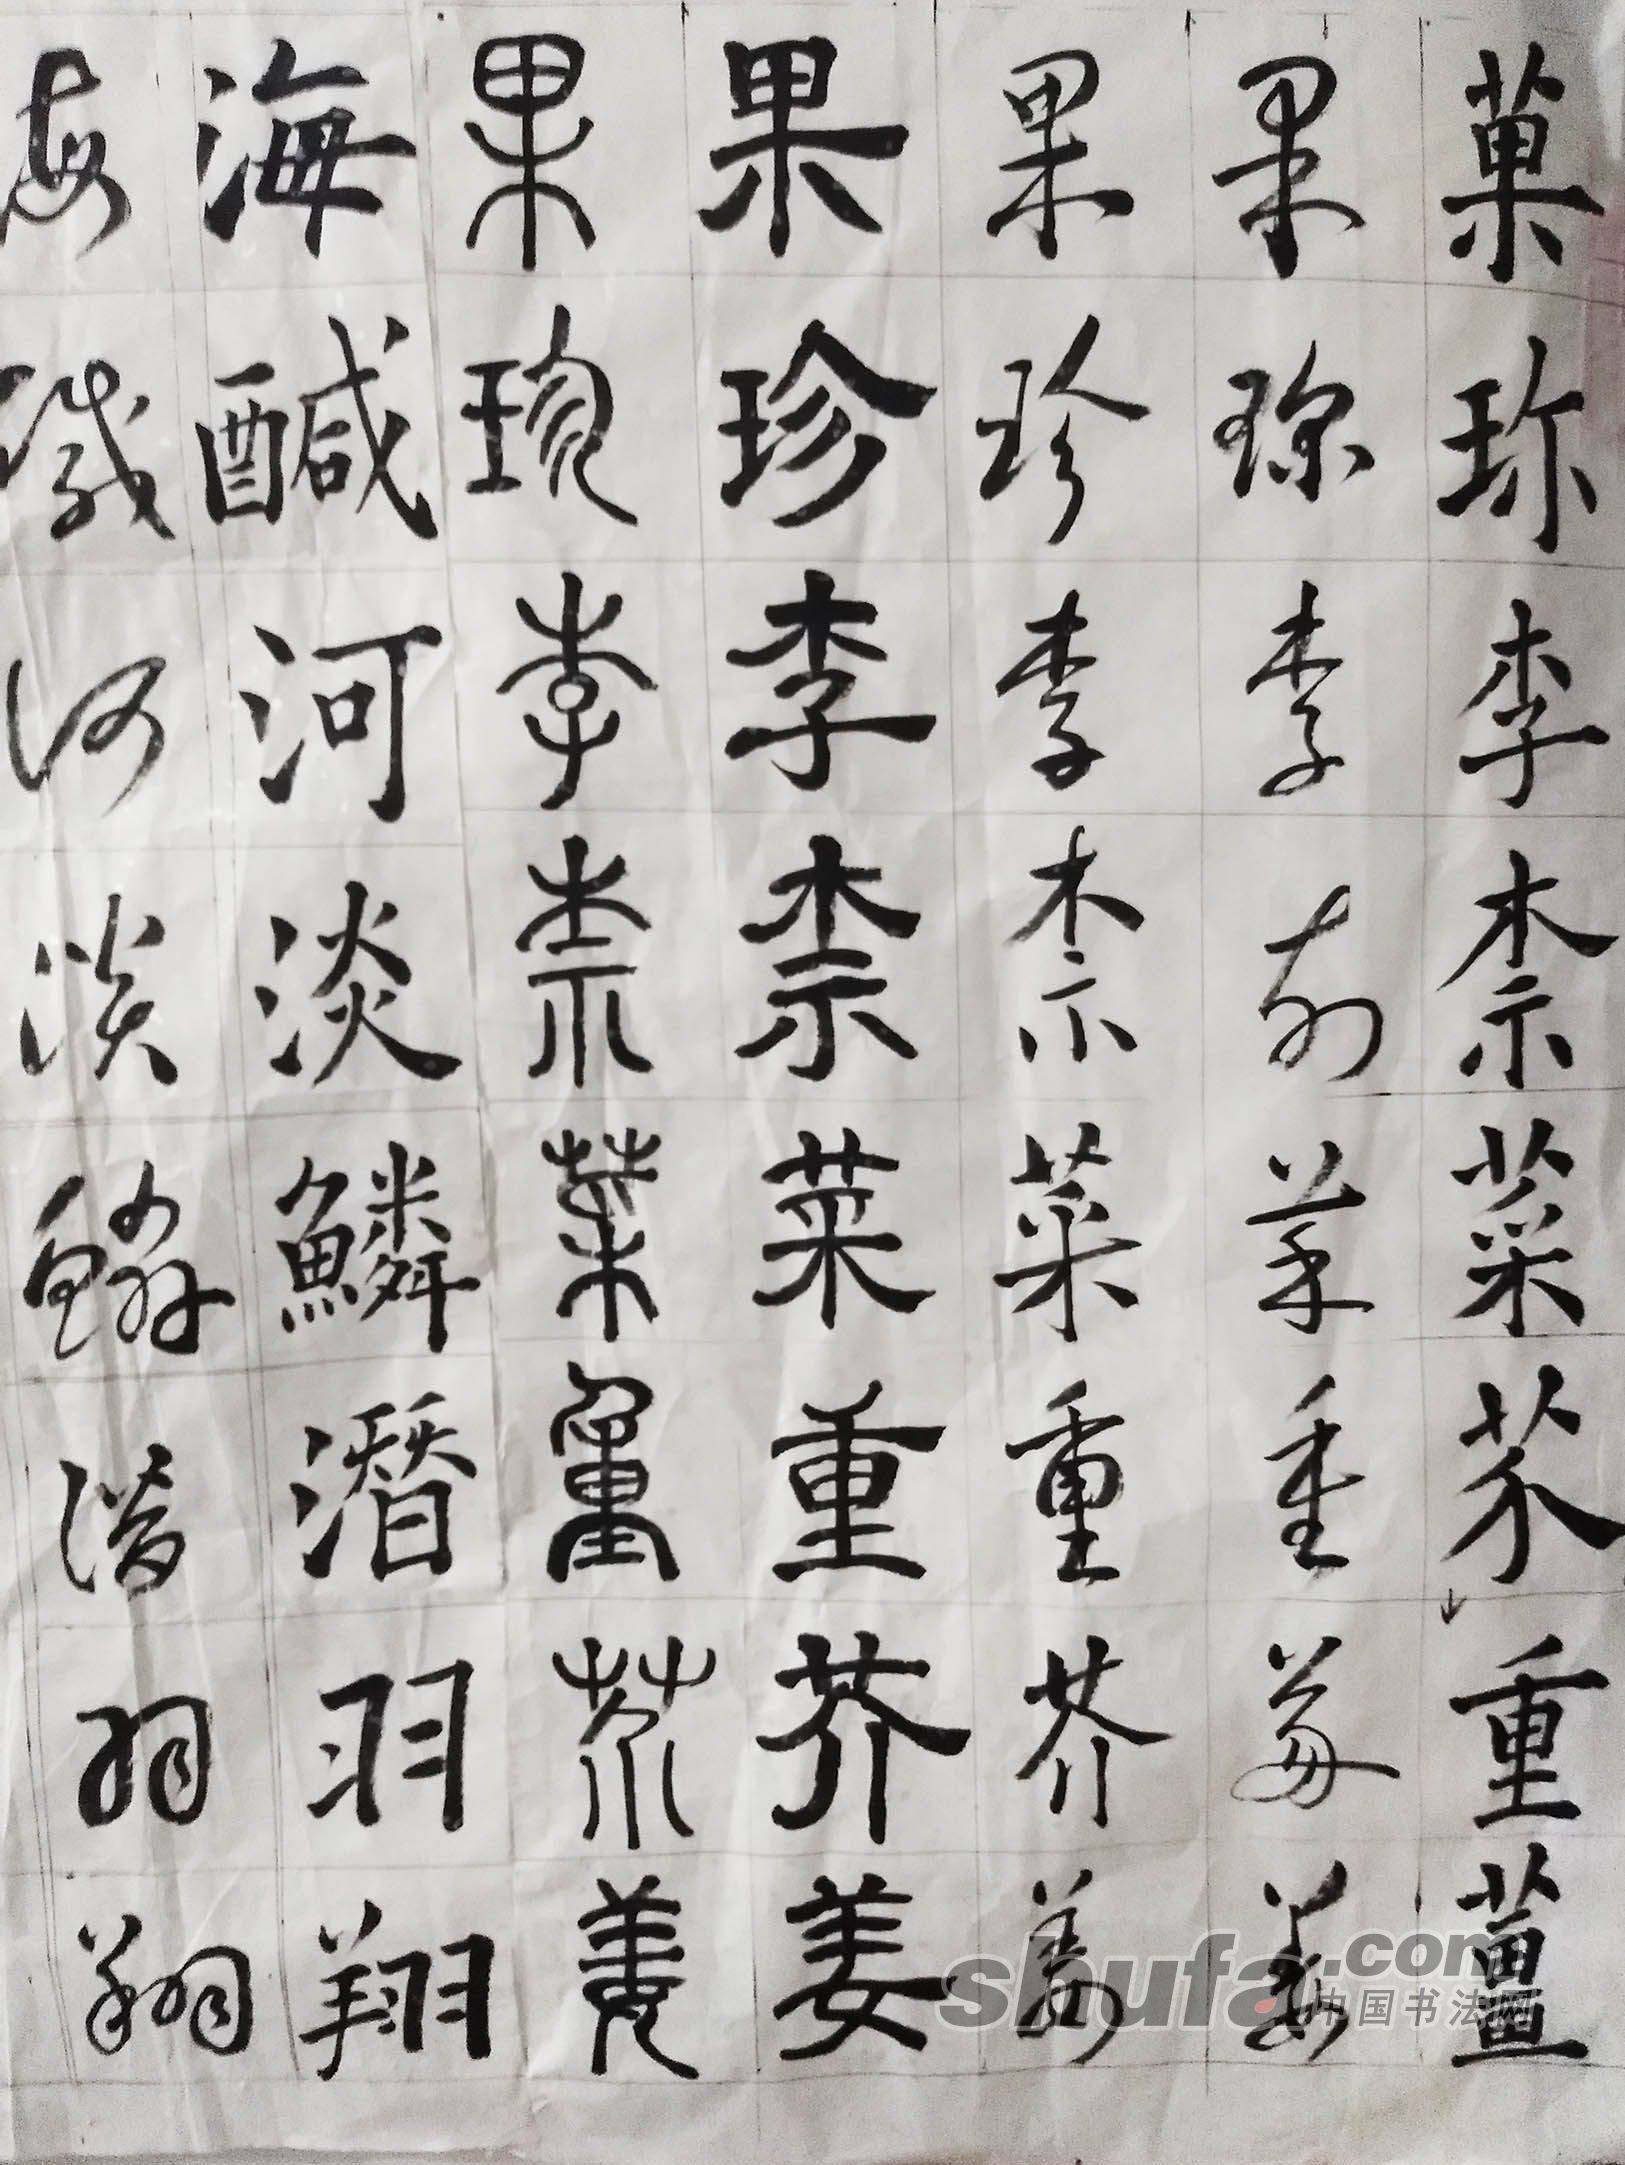 菓珎李柰菜芥重薑
果珎李柰菜重芥姜
果珍李柰菜重芥姜
果珍李柰菜重芥姜
果珍李柰菜重芥姜
海醎河淡鱗潛羽翔
海醎河淡鱗潛羽翔
shufa.com
中国书法网